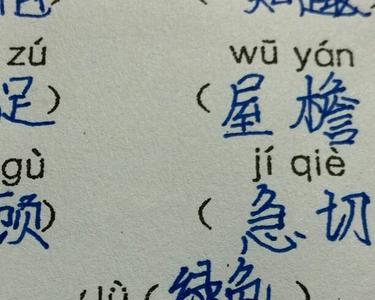 zú wū yán
足） （ 屋檐
gù jí qiè
顾） （ 急切
lǜ （ 绿色 ）